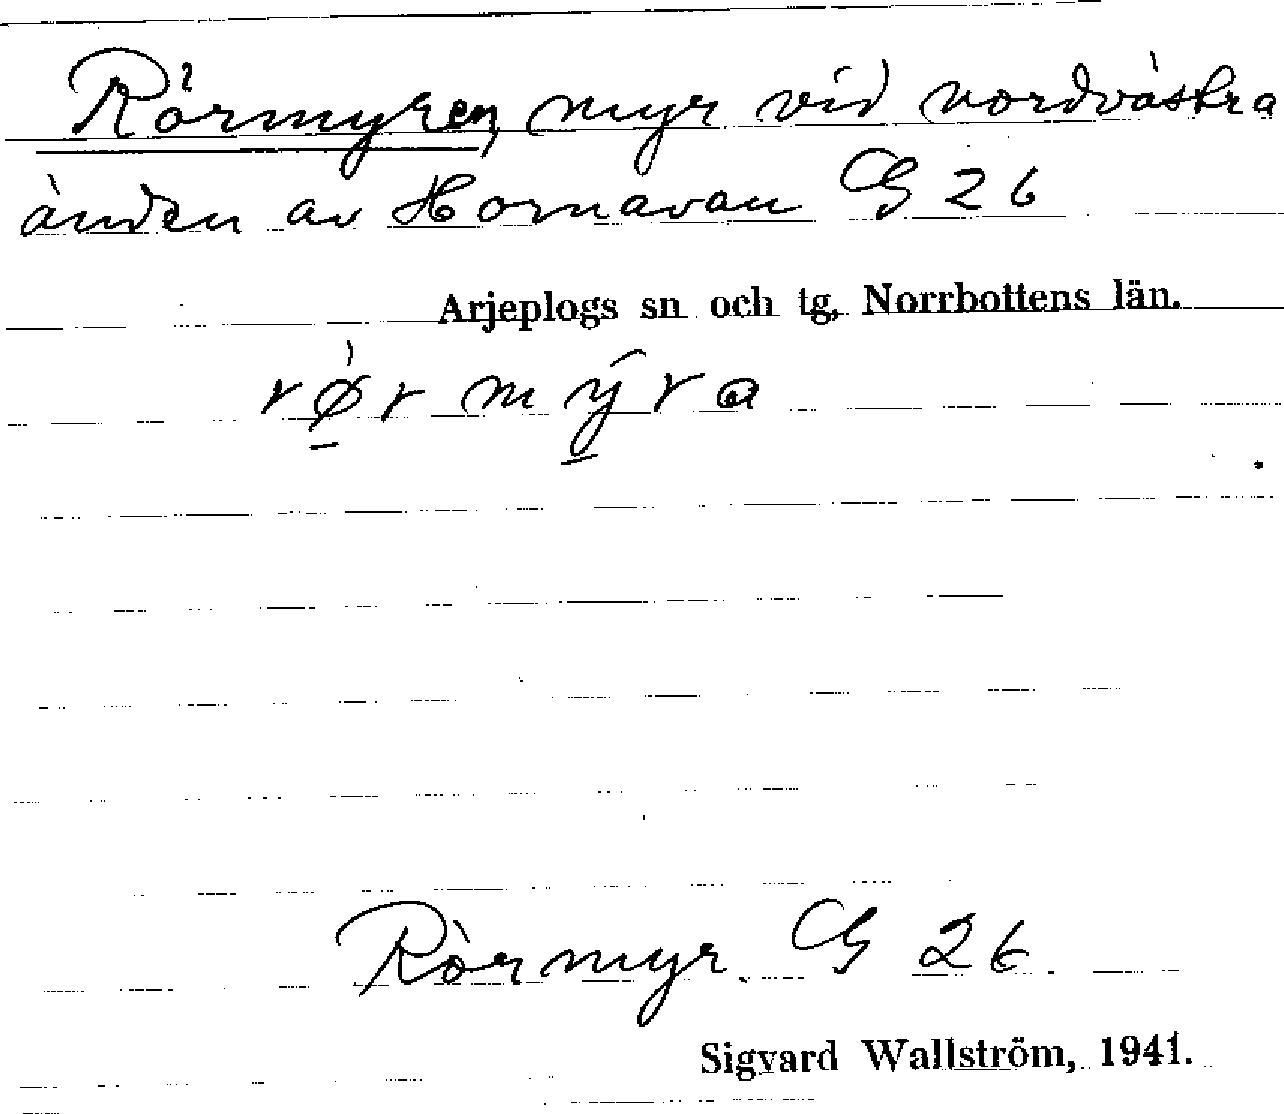 Rörmyren, myr vid nordvästra
änden av Hornavan G 26
Arjeplogs sn och tg, Norrbottens län.
rø̱̀rmŷ̱ra
Rörmyr G 26
Sigvard Wallström, 1941.